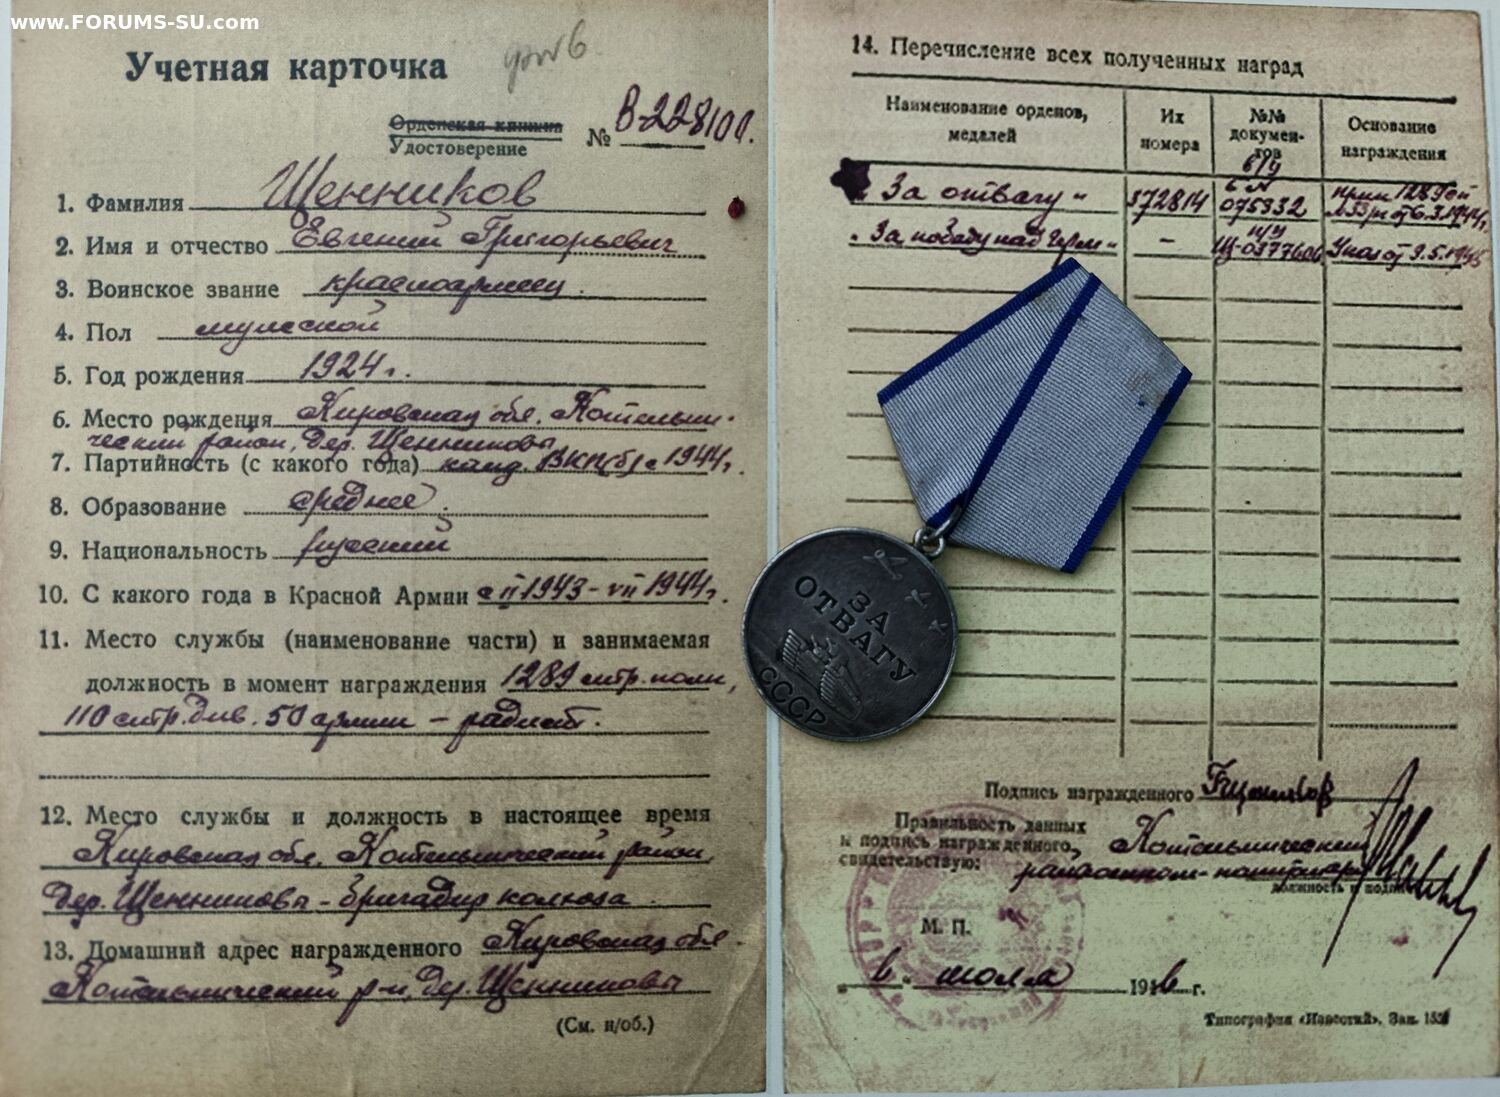 www.FORUMS-SU.com
Учетная карточка
Орденская книжка
Удостоверение
№ В-228100.
1. Фамилия Щенников
2. Имя и отчество Евгений Григорьевич
3. Воинское звание красноармеец.
4. Пол мужской
5. Год рождения 1924 г.
6. Место рождения Кировская обл. Котельни-
ческий район, дер. Щенниковы
7. Партийность (с какого года) канд. ВКП(б) с 1944 г.
8. Образование среднее.
9. Национальность русский
10. С какого года в Красной Армии с II 1943 - VII 1944 г.
11. Место службы (наименование части) и занимаемая
должность в момент награждения 1289 стр. полк,
110 стр. див. 50 армии - радист.
12. Место службы и должность в настоящее время
Кировская обл. Котельнический район,
дер. Щенниковы - бригадир колхоза
13. Домашний адрес награжденного Кировская обл.
Котельнический р-н, дер. Щенниковы
(См. н/об.)
14. Перечисление всех полученных наград
Наименование орденов, медалей
Их номера
№№ документов
Основание награждения
б/у
„За отвагу" 572814 075932 прик 1289 сп от 6.3.1944 г.
„За победу над Герм" - Щ-0377606 Указ от 9.5.1945
ЗА
ОТВАГУ
СССР
Подпись награжденного
Правильность данных
и подпись награжденного,
свидетельствую: Котельнический
должность и подпись
М. П.
„6" июля 1946 г.
Типография «Известий». Зак.